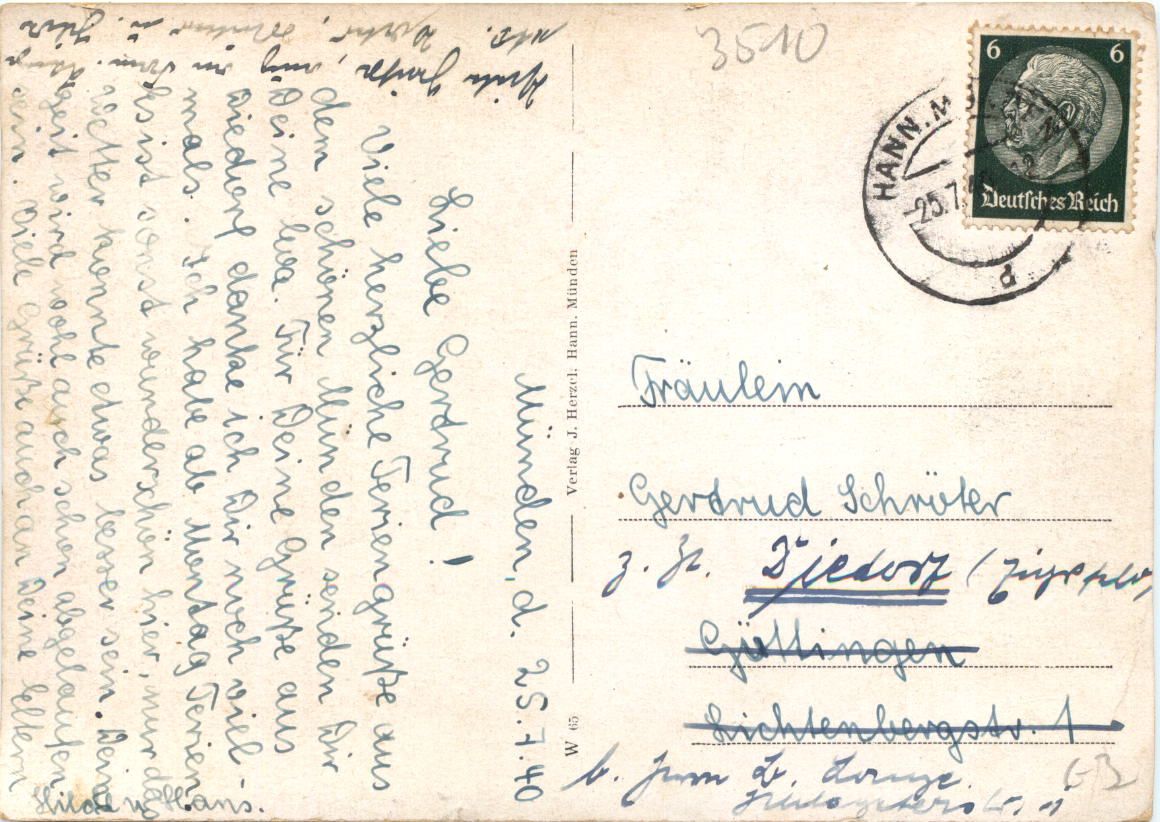 Münden, d. 25.7.40
Liebe Gertrud!
Viele herzliche Feriengrüße aus
dem schönen Münden senden Dir
Deine Eva. Für Deine Grüße aus
Diedorf danke ich Dir noch viel-
mals. Ich habe ab Montag Ferien
es ist sonst wunderschön hier, nur das
Wetter konnte etwas besser sein. Deine
Zeit wird wohl auch schon abgelaufen
sein. Viele Grüße auch an Deine Eltern
Hilde u. Hans.
Verlag J. Herzel. Hann. Münden
W 65
3510
6 6
Deutsches Reich
HANN. M
25.7.
d
Fräulein
Gertrud Schröter
z. Zt. Diedorf
Göttingen
Lichtenbergstr. 1
b.